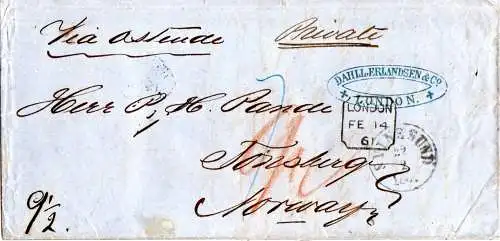 Via Ostende
Private
DAHLL.ERLANDSEN & Co
LONDON.
LONDON
FE 14
61
Herr P. H. Pande
Tönsberg
Norway
9/2.